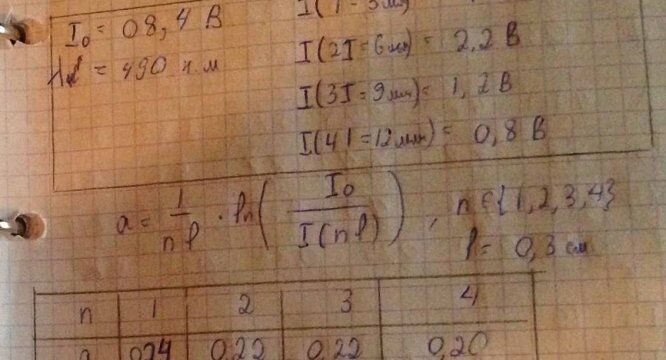 I₀ = 08,4 В
λ = 490 н м
I(2I=6мм) = 2,2 В
I(3I=9мм)= 1,2 В
I(4I=12мм)= 0,8 В
a = 1/(nl) · ln(I₀/I(nl)), n∈{1,2,3,4}
l = 0,3 см
n 1 2 3 4
0,22 0,22 0,20